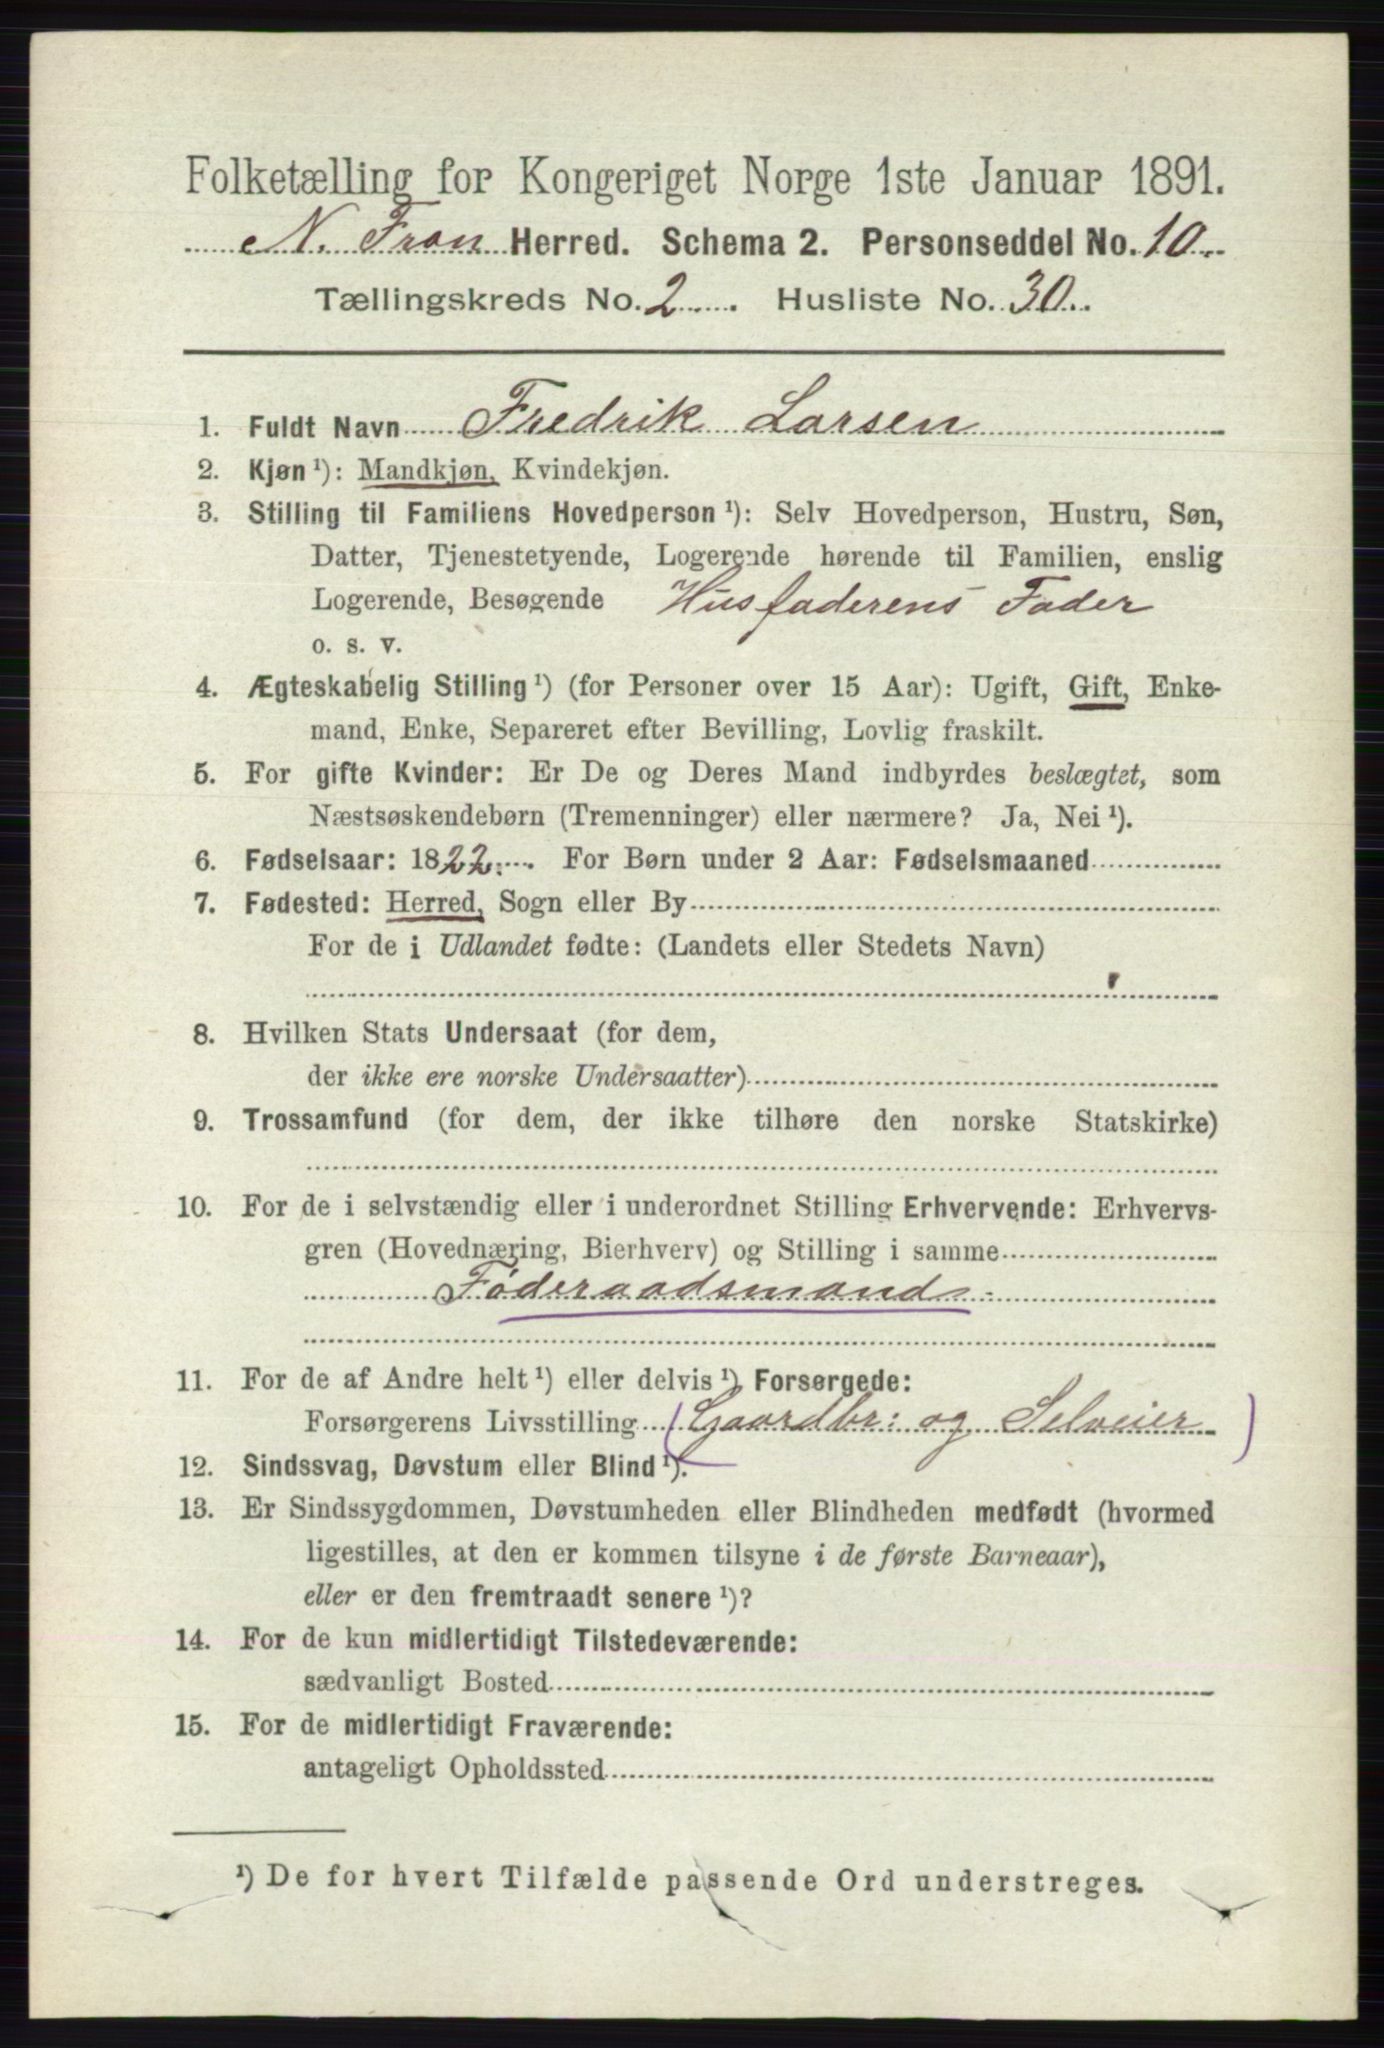 Folketælling for Kongeriget Norge 1ste Januar 1891.
N. Fron Herred. Schema 2. Personseddel No. 10
Tællingskreds No. 2. Husliste No. 30
1. Fuldt Navn Fredrik Larsen
2. Kjøn ¹): Mandkjøn, Kvindekjøn.
3. Stilling til Familiens Hovedperson ¹): Selv Hovedperson, Hustru, Søn,
Datter, Tjenestetyende, Logerende hørende til Familien, enslig
Logerende, Besøgende Husfaderens Fader
o. s. v.
4. Ægteskabelig Stilling ¹) (for Personer over 15 Aar): Ugift, Gift, Enke-
mand, Enke, Separeret efter Bevilling, Lovlig fraskilt.
5. For gifte Kvinder: Er De og Deres Mand indbyrdes beslægtet, som
Næstsøskendebørn (Tremenninger) eller nærmere? Ja, Nei ¹).
6. Fødselsaar: 1822. For Børn under 2 Aar: Fødselsmaaned
7. Fødested: Herred, Sogn eller By
For de i Udlandet fødte: (Landets eller Stedets Navn)
8. Hvilken Stats Undersaat (for dem,
der ikke ere norske Undersaatter)
9. Trossamfund (for dem, der ikke tilhøre den norske Statskirke)
10. For de i selvstændig eller i underordnet Stilling Erhvervende: Erhvervs-
gren (Hovednæring, Bierhverv) og Stilling i samme
Føderaadsmand
11. For de af Andre helt ¹) eller delvis ¹) Forsørgede:
Forsørgerens Livsstilling (Gaardbr: og Selveier)
12. Sindssvag, Døvstum eller Blind ¹).
13. Er Sindssygdommen, Døvstumheden eller Blindheden medfødt (hvormed
ligestilles, at den er kommen tilsyne i de første Barneaar),
eller er den fremtraadt senere ¹)?
14. For de kun midlertidigt Tilstedeværende:
sædvanligt Bosted
15. For de midlertidigt Fraværende:
antageligt Opholdssted
¹) De for hvert Tilfælde passende Ord understreges.